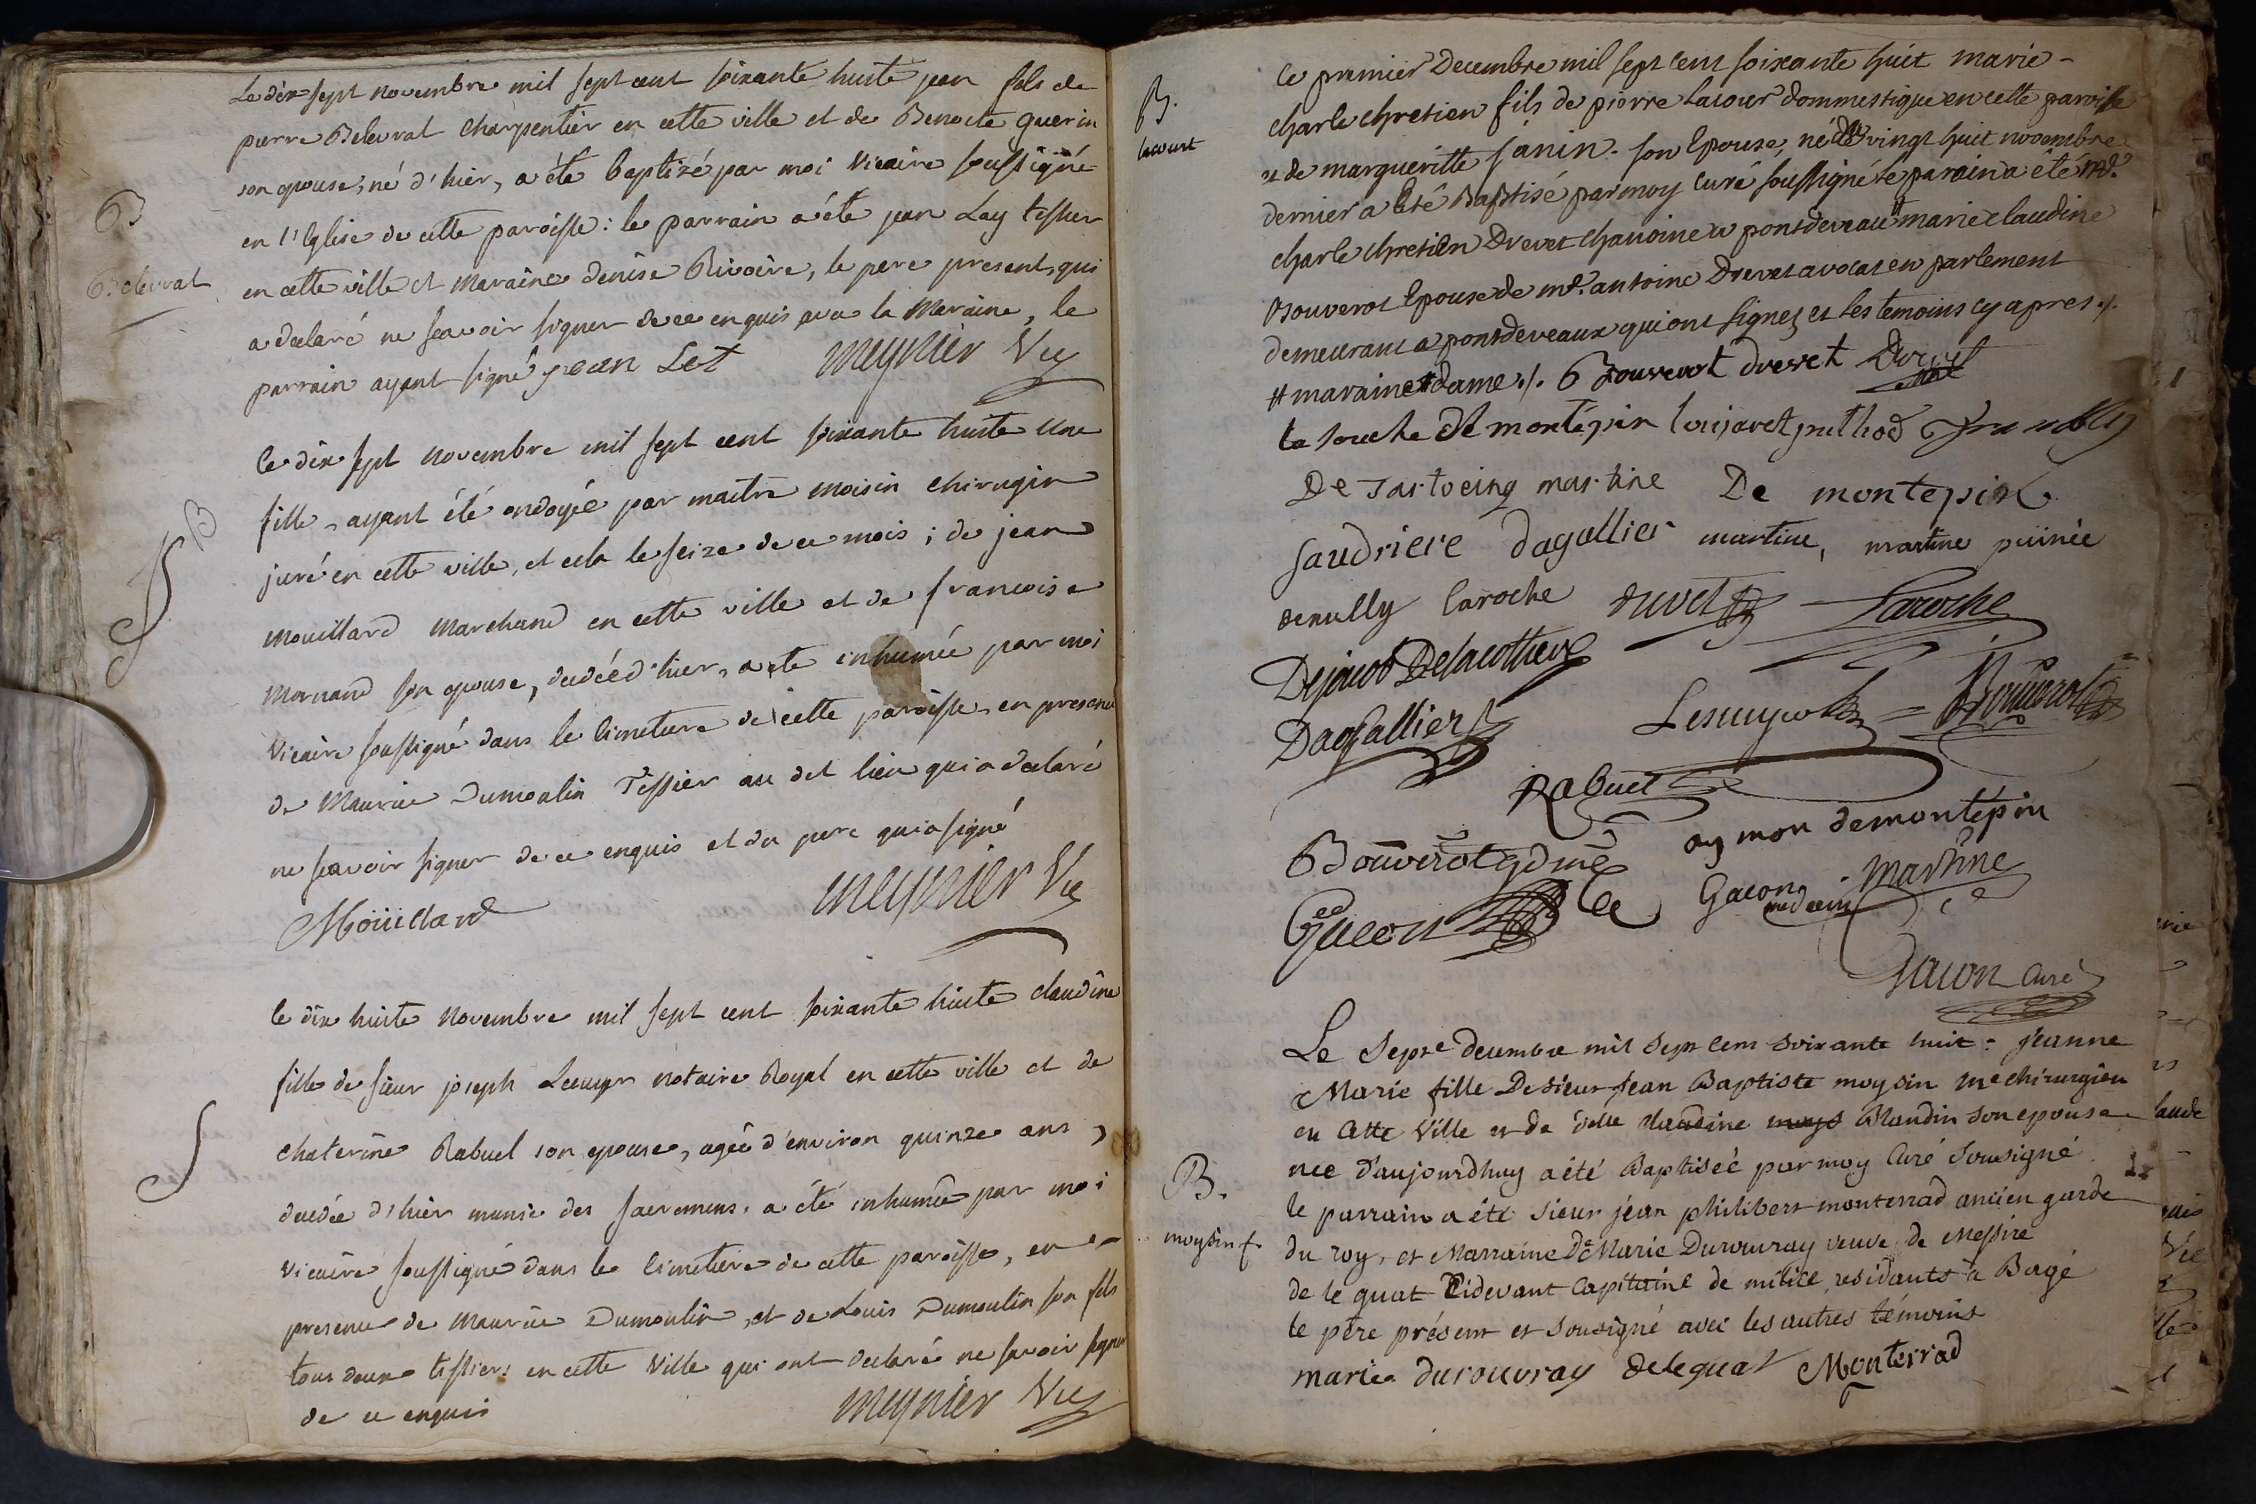 Le dix sept novembre mil sept cent soixante huite jean fils de
pierre Belevrat charpentier en cette ville et de Benoite guerin
son epouse, né d'hier, a été baptizé par moi vicaire soussigné
en l'Eglise de cette paroisse : le parrain a été jean Lay tissier
en cette ville et maraine denise Rivoire, le pere present, qui
a declaré ne sçavoir signer de ce enquis avec la Maraine, le
parrain ayant signé jean Let meynier Vic
B
Belevrat
Ce dix sept novembre mil sept cent soixante huite une
fille, ayant été ondoyée par maitre moisin chirugien
juré en cette ville, et cela le seize de ce mois ; de jean
mouillard marchand en cette ville et de francoise
Mornand son epouse, decedée d'hier, a ete inhumée par moi
vicaire soussigné dans le cimetiere de cette paroisse, en presence
de Maurice Dumoulin Tissier au dit lieu qui a declaré
ne sçavoir signer de ce enquis et du pere qui a signé
Moüillard meynier Vic
B
S
le dix huite novembre mil sept cent soixante huite claudine
fille de sieur joseph Lecuyer notaire Royal en cette ville et de
chaterine Rabuel son epouse, agée d'environ quinze ans,
decedée d'hier munie des sacremens, a été inhumée par moi
vicaire soussigné dans le cimetiere de cette paroisse, en
presence de Maurice Dumoulin, et de Louis Dumoulin son fils
tous deux tissiers en cette ville qui ont declaré ne savoir signer
de ce enquis meynier Vic
S
B.
lacourt
Ce premier Decembre mil sept cent soixante huit marie -
charle chretien fils de pierre lacour dommestique en cette paroisse
et de margueritte janin son Epouse, né le vingt huit novembre
dernier a Eté Baptisé par moy curé soussigné le parain a été mr.
charle chretien Drevet chanoine a pontdevaux # marie claudine
Bouverot Epouse de mr. antoine Drevet avocat en parlement
demeurant a pontdevaux qui ont signez et les temoins cy apres ./.
# maraine dame ./. Bouverot drevet Drevet
la souche De montépin loujaret puthod
De martine De montepin
jaudriere dagallier martine, martine puinée
denully laroche duvet Laroche
Dejacob Delacottiere
Dagallier Lescuyer Bouverot
Rabuel
Bouverot aymon demontépin
Gacon Gacon medecin Martine
Gacon Curé
Le Sept.e decembre mil sept cent soixante huit : jeanne
Marie fille De sieur Jean Baptiste moysin me chirurgien
en Cette Ville et de delle claudine Blandin son epouse
née d'aujourdhuy a été Baptiseé par moy Curé Sousigné
le parrain a été sieur jean philibert monterrad ancien garde
du roy, et Marraine De Marie Durouvray veuve de Messire
de le guat Cidevant Capitaine de milice, residants à Bagé
le père présent et sousigné avec les autres témoins
marie durouvray deleguat Monterrad
B.
moysin f.